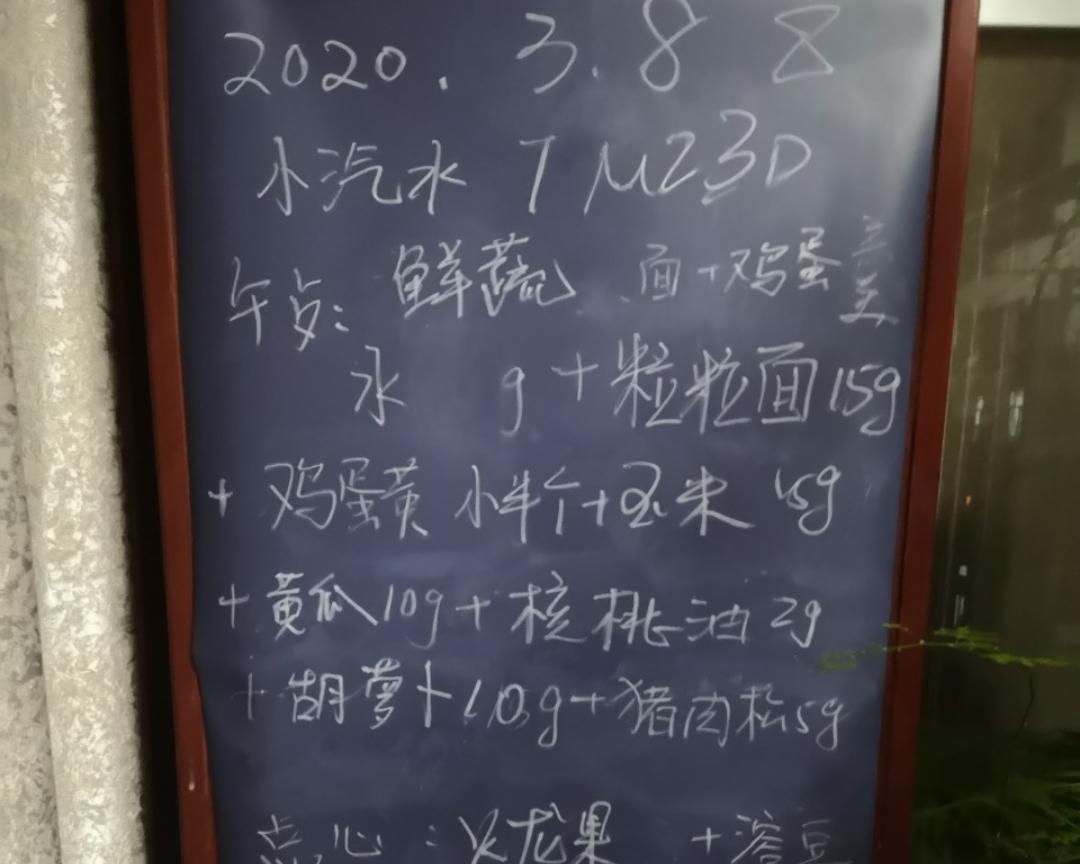 2020. 3. 8 8
小汽水 7M23D
午点: 鲜蔬 面+鸡蛋羹
水 g+粒粒面15g
+ 鸡蛋黄 小半个+玉米 15g
+黄瓜10g+核桃油2g
+胡萝卜10g+猪肉松5g
点心:火龙果 +溶豆